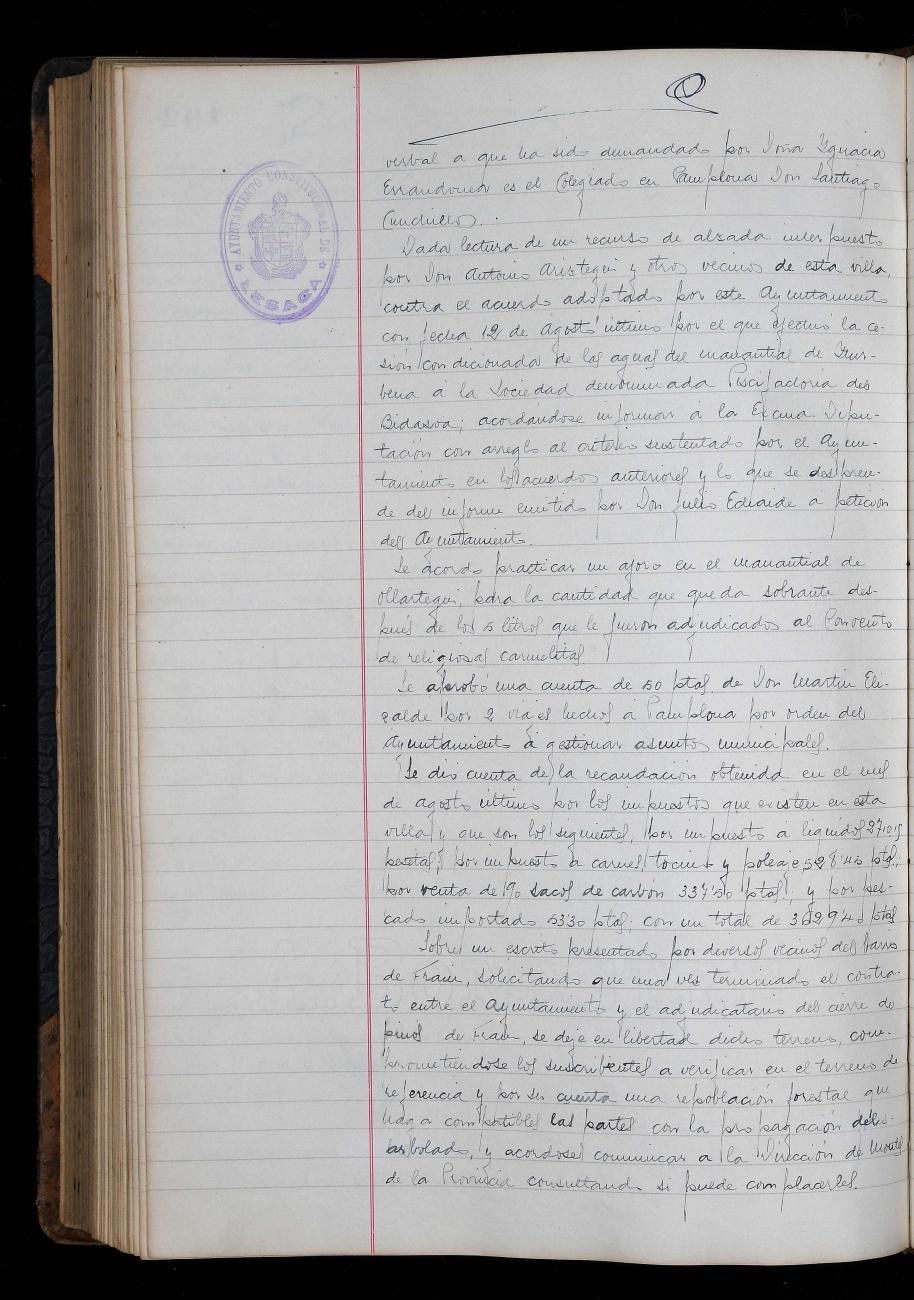 AYUNTAMIENTO CONSTITUCIONAL DE
LESACA
verbal a que ha sido demandado por Doña Ygnacia
Errandonea es el Colegiado en Pamplona Don Santiago
Cunchillos.
Dada lectura de un recurso de alzada interpuesto
por Don Antonio Aristegui y otros vecinos de esta villa,
contra el acuerdo adoptado por este Ayuntamiento
con fecha 12 de Agosto último por el que efectuó la ce-
sión condicionada de las aguas del manantial de Itur-
bena á la Sociedad denominada Piscifactoria del
Bidasoa; acordándose informar á la Excma. Dipu-
tación con arreglo al criterio sustentado por el Ayun-
tamiento en los acuerdos anteriores y lo que se despren-
de del informe emitido por Don Julio Echaide a petición
del Ayuntamiento.
Se acordo practicar un aforo en el manantial de
Ollartegui, para la cantidad que queda sobrante des-
pués de los 5 litros que le fueron adjudicados al Convento
de religiosas carmelitas.
Se aprobó una cuenta de 50 ptas. de Don Martin Eli-
zalde por 2 viajes hechos á Pamplona por orden del
Ayuntamiento á gestionar asuntos municipales.
Se dio cuenta de la recaudación obtenida en el mes
de agosto último por los impuestos que existen en esta
villa y que son los siguientes, por impuesto á liquidos
pesetas, por impuesto a carnes, tocino y poleaje 528'45 ptas,
por venta de 90 sacos de carbón 337'50 ptas; y por pes-
cado importado 53'30 ptas; con un total de ptas
Sobre un escrito presentado por diversos vecinos del barrio
de Frain, solicitando que una ves terminado el contra-
to entre el Ayuntamiento y el adjudicatario del cierre de
pinos de Frain, se deje en libertad dicho terreno, com-
prometiendose los suscribientes a verificar en el terreno de
referencia y por su cuenta una repoblación forestal que
haga compatibles las partes con la propagación del
arbolado, y acordose comunicar a la Dirección de Montes
de la Provincia consultando si puede complacerles.